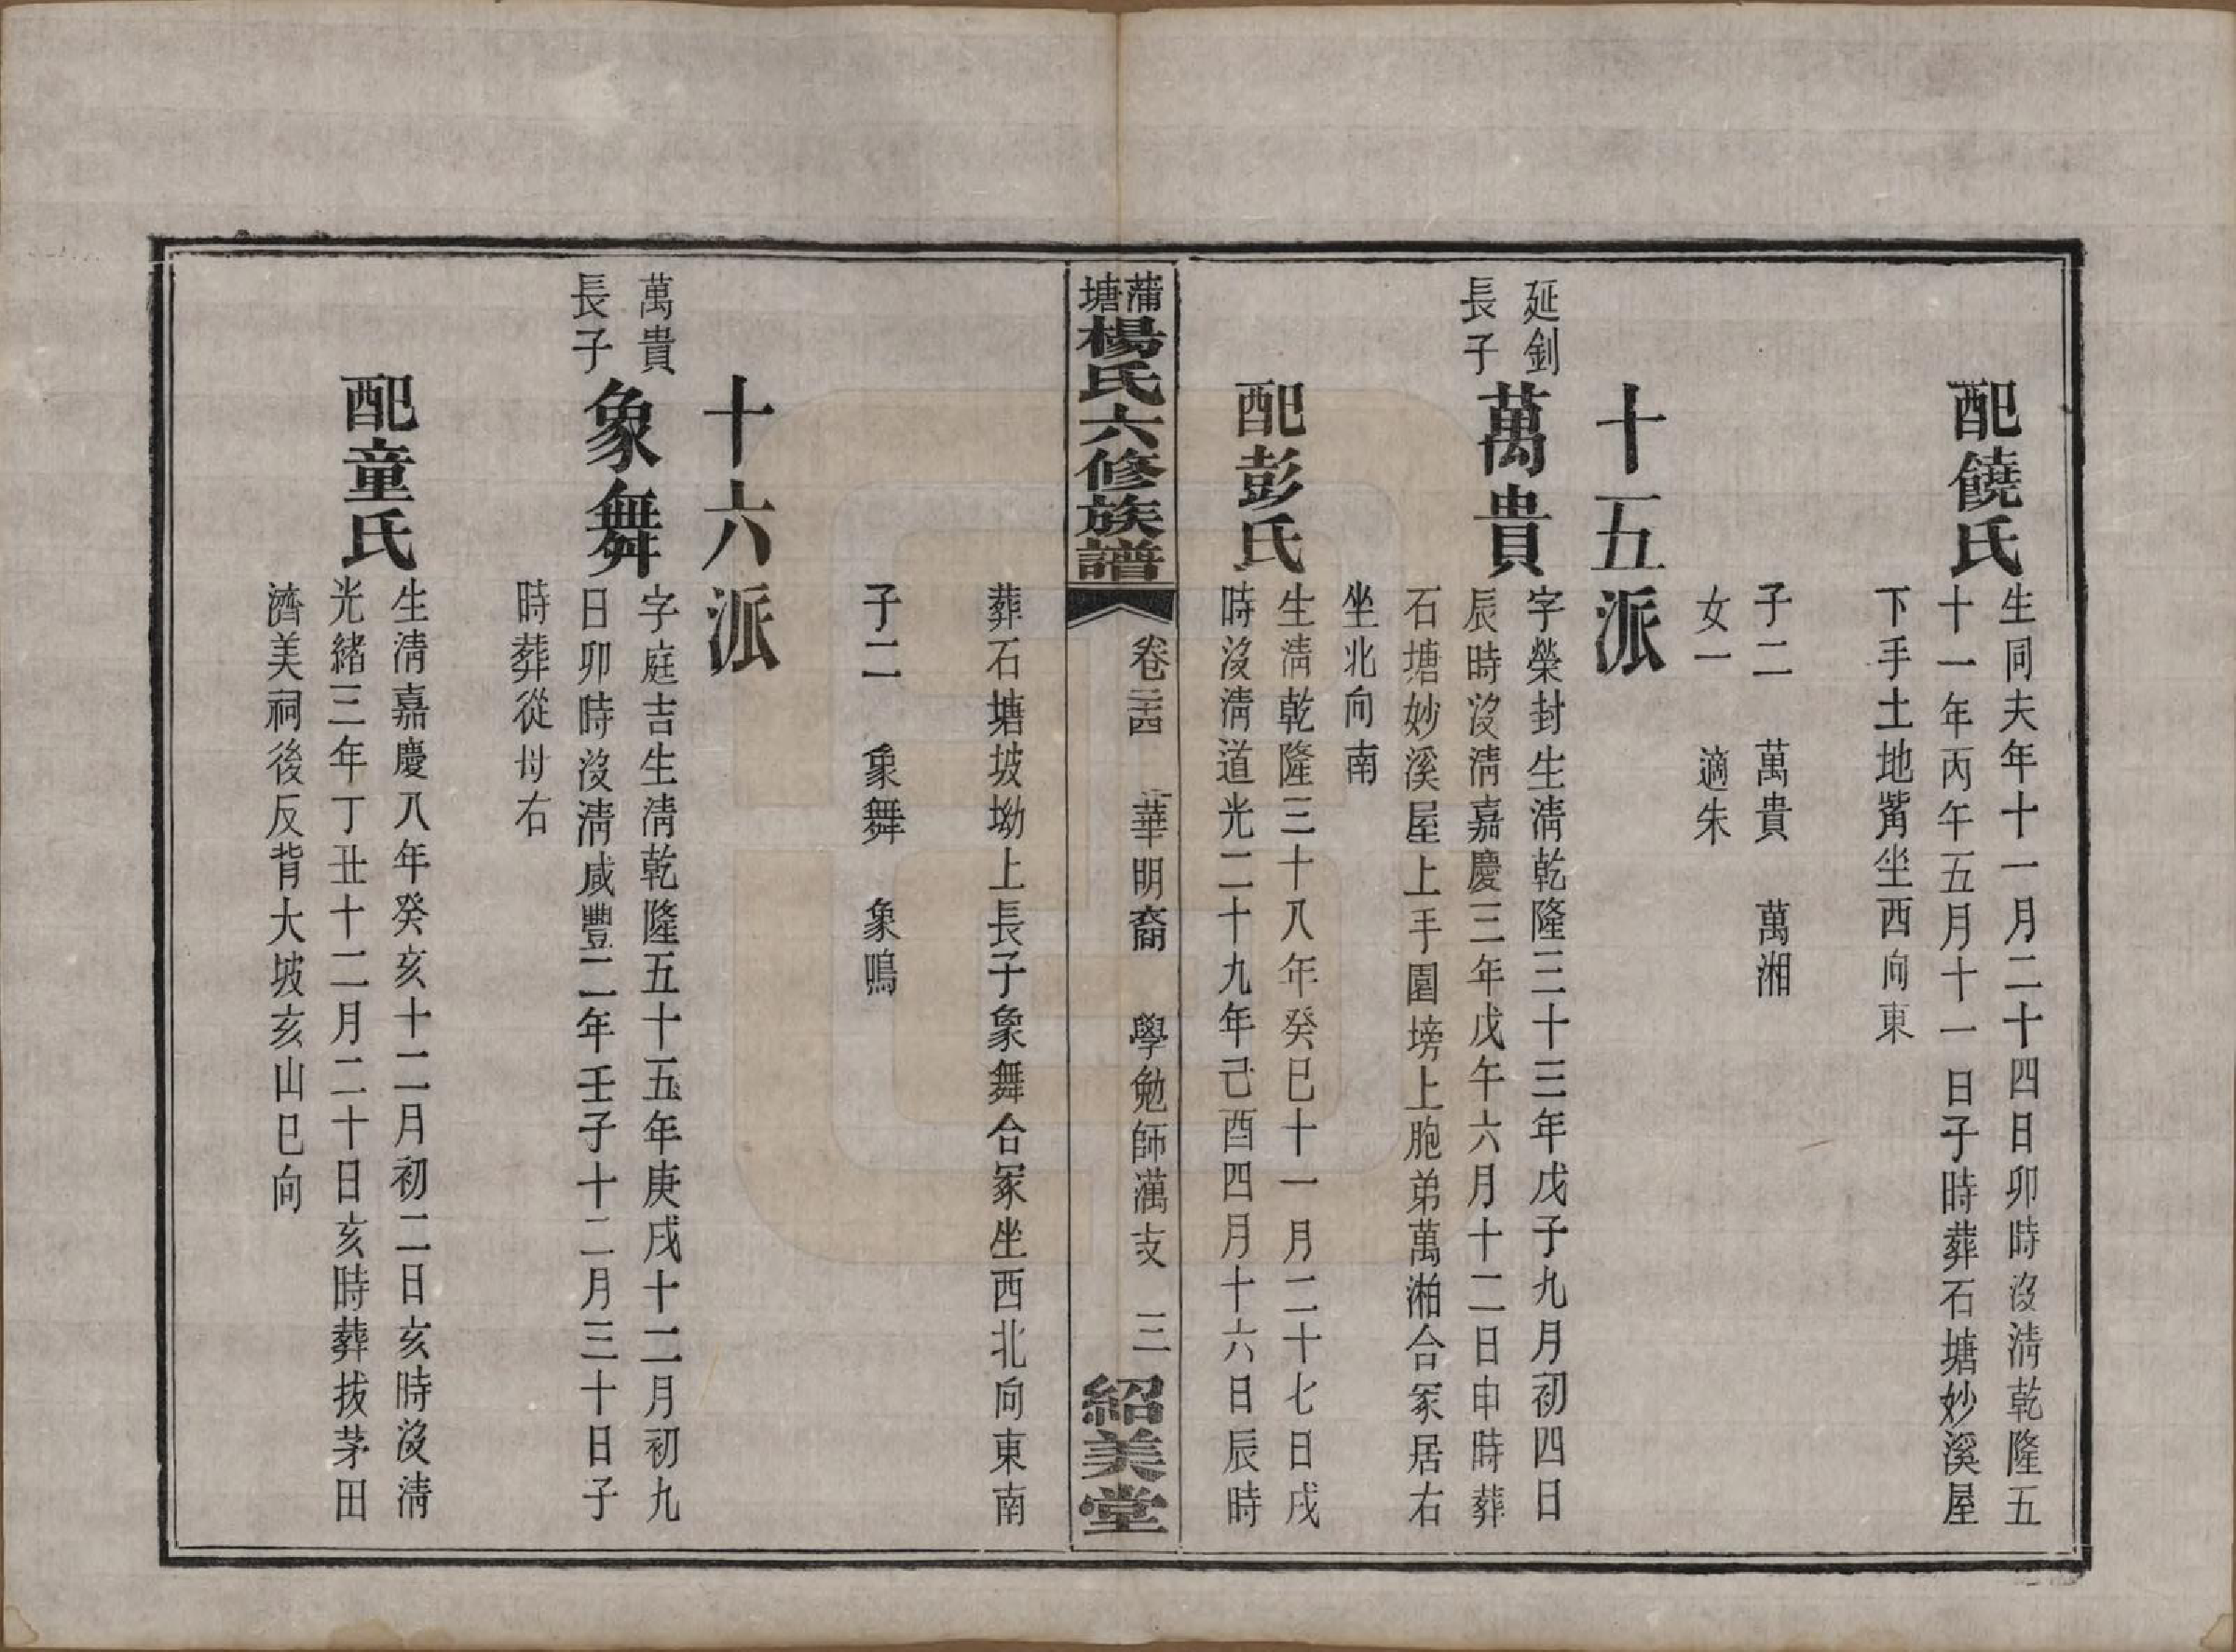 配饒氏
生同夫年十一月二十四日卯時沒清乾隆五
十一年丙午五月十一日子時葬石塘妙溪屋
下手土地觜坐西向東
子二　萬貴　萬湘
女一　適朱
十五派
延釗
長子
萬貴
字榮封生清乾隆三十三年戊子九月初四日
辰時沒清嘉慶三年戊午六月十二日申時葬
石塘妙溪屋上手園塝上胞弟萬湘合冢居右
坐北向南
配彭氏
生清乾隆三十八年癸巳十一月二十七日戌
時沒清道光二十九年己酉四月十六日辰時
蒲塘楊氏六修族譜　卷二十四　華明裔　學勉師萬支　三　紹美堂
葬石塘坡坳上長子象舞合冢坐西北向東南
子二　象舞　象鳴
十六派
萬貴
長子
象舞
字庭吉生清乾隆五十五年庚戌十二月初九
日卯時沒清咸豐二年壬子十二月三十日子
時葬從母右
配童氏
生清嘉慶八年癸亥十二月初二日亥時沒清
光緒三年丁丑十二月二十日亥時葬拔茅田
濟美祠後反背大坡亥山巳向